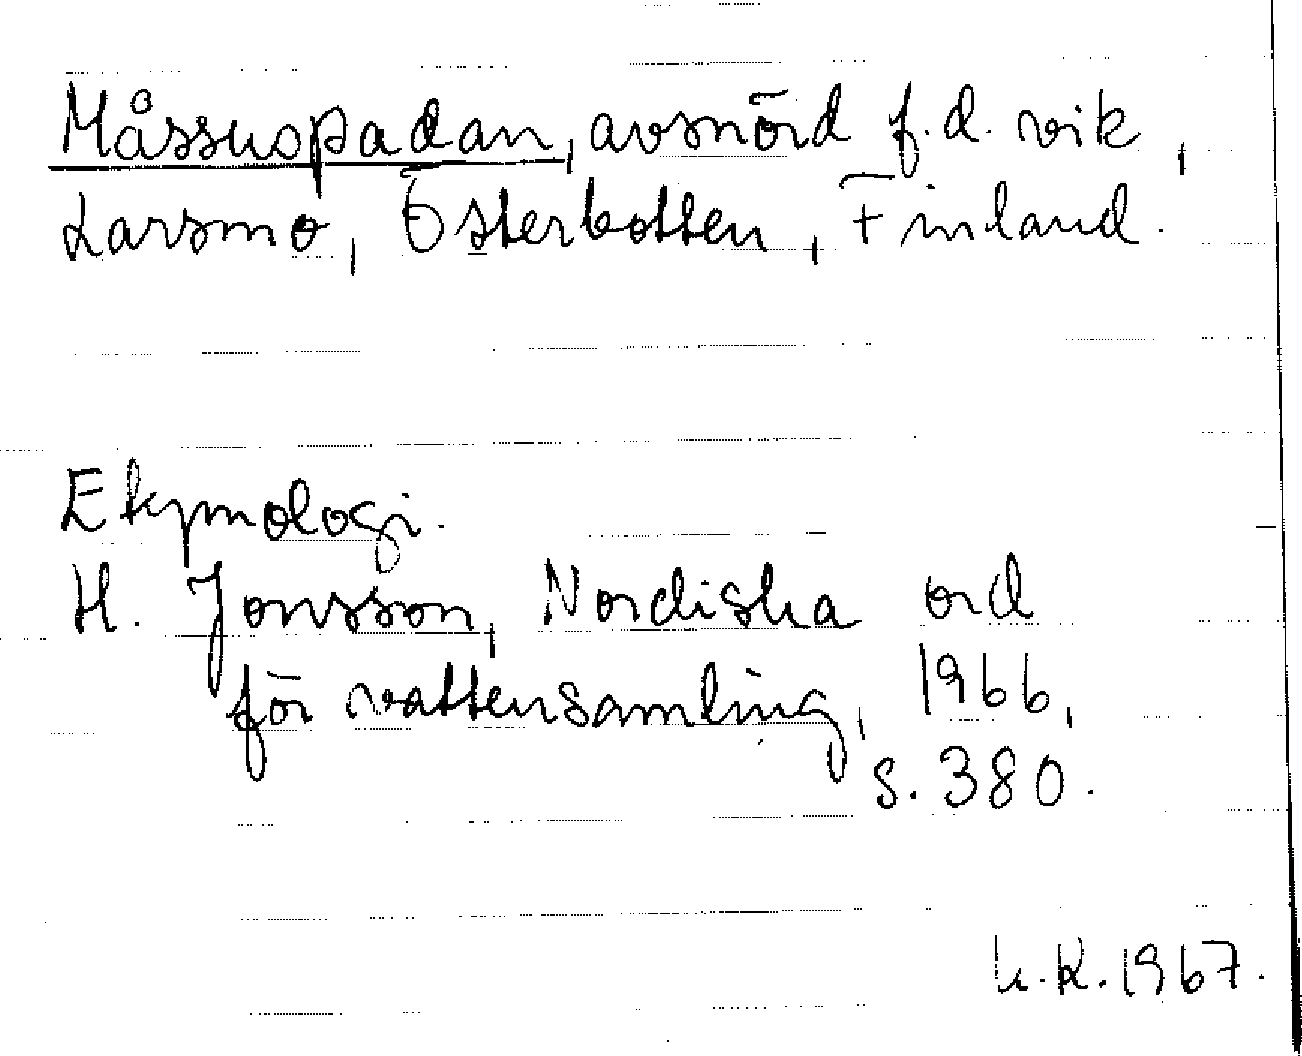 Måssuspadan, avsnörd f.d. vik,
Larsmo, Österbotten, Finland.
Etymologi.
H. Jonsson, Nordiska ord
för vattensamling, 1966,
s. 380.
K.K. 1967.